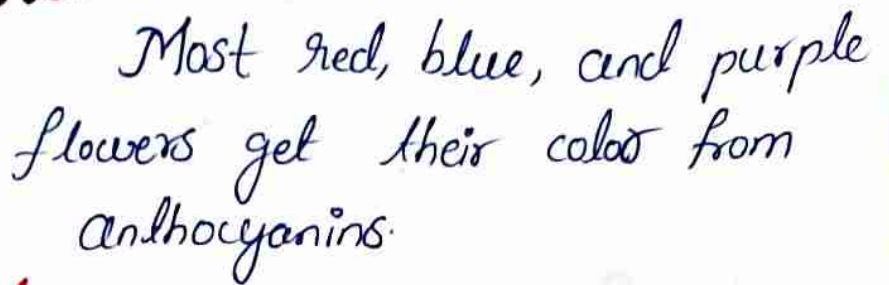 Most red, blue, and purple
flowers get their color from
anthocyanins.